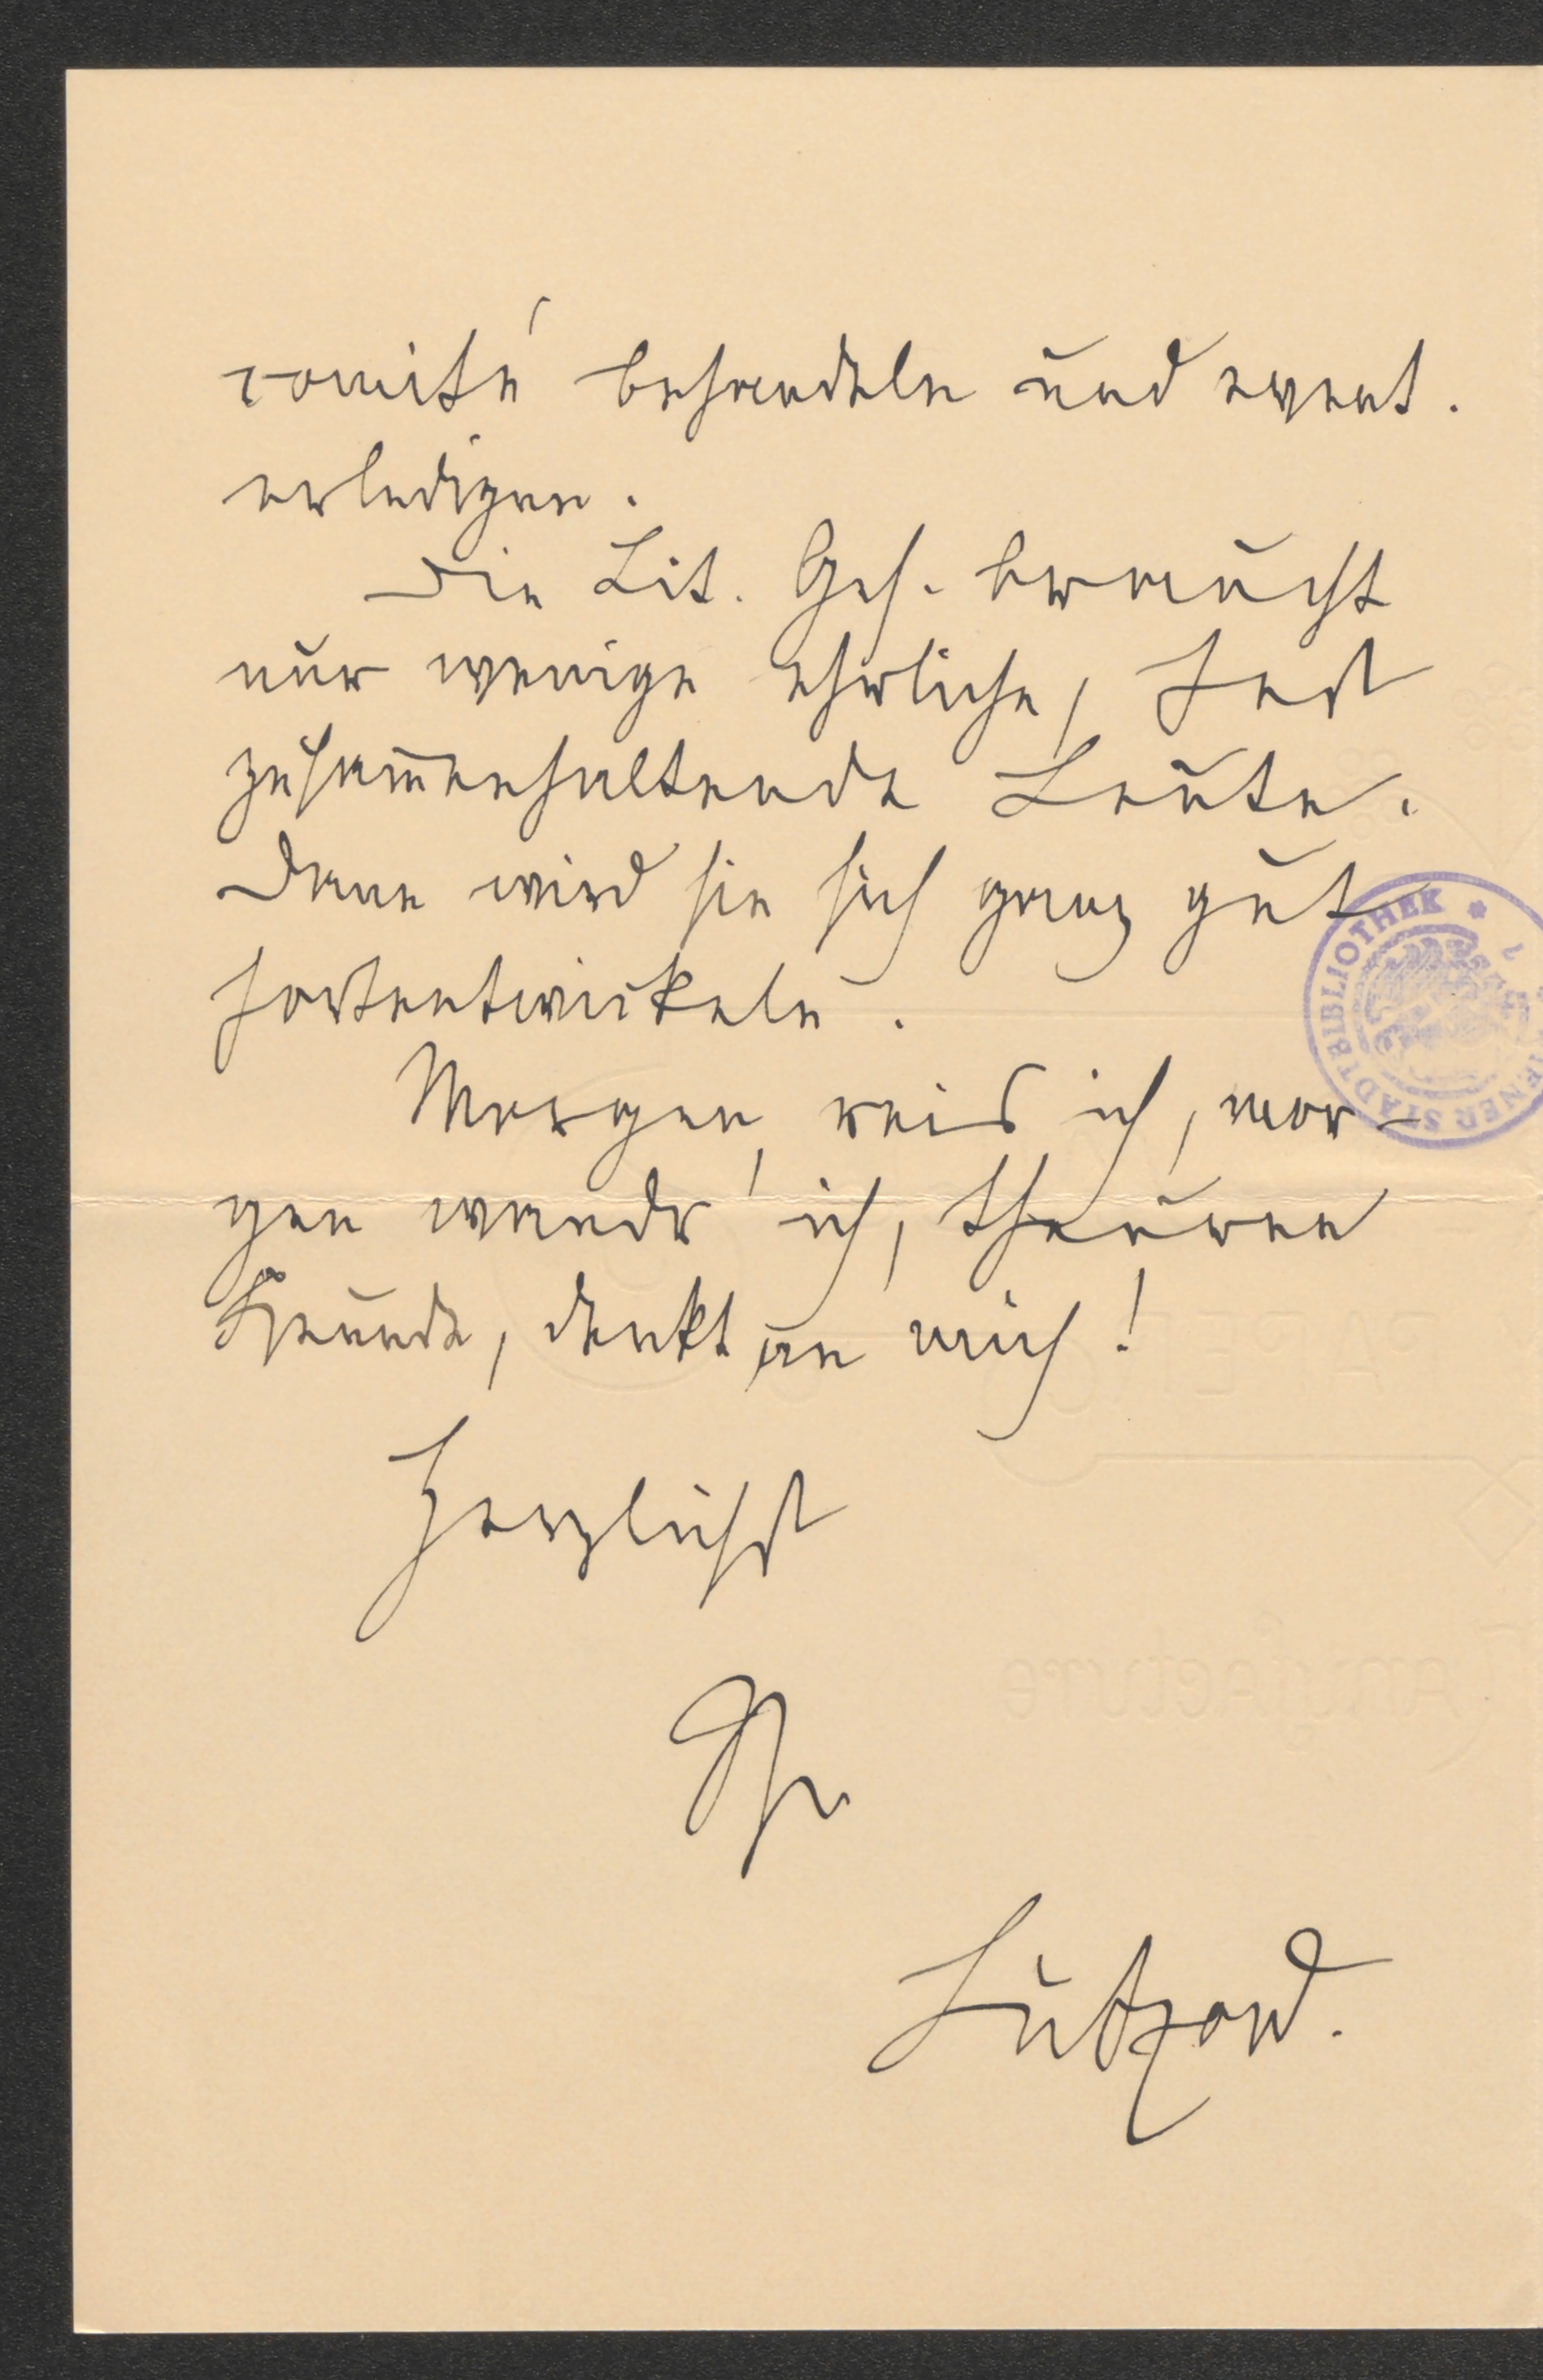 comité behandeln und event.
erledigen.
Die Lit. Ges. braucht
nur wenige ehrliche, fest
zusam̅enhaltende Leute.
Dann wird sie sich ganz gut
fortentwickeln.
Morgen reis' ich, mor-
gen wandr' ich, theuren
Freunde, denkt an mich!
Herzlichst
Ihr
Lützow.
WIENER STADTBIBLIOTHEK *